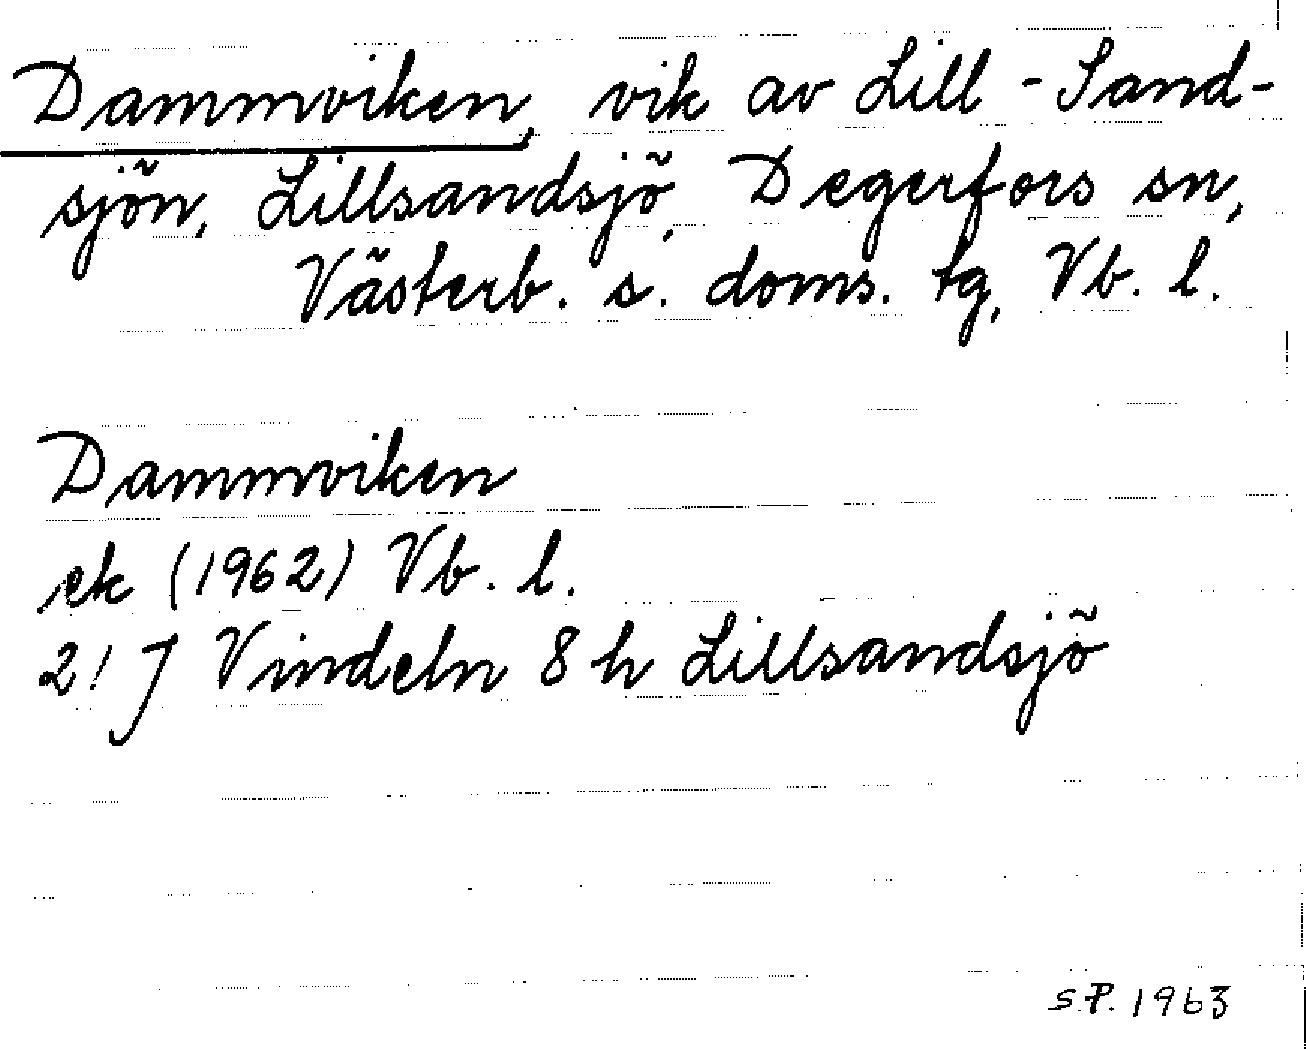 Dammviken, vik av Lill-Sand-
sjön, Lillsandsjö, Degerfors sn,
Västerb. s. doms. tg, Vb. l.
Dammviken
ek (1962) Vb. l.
21 J Vindeln 8 h Lillsandsjö
S.P. 1963